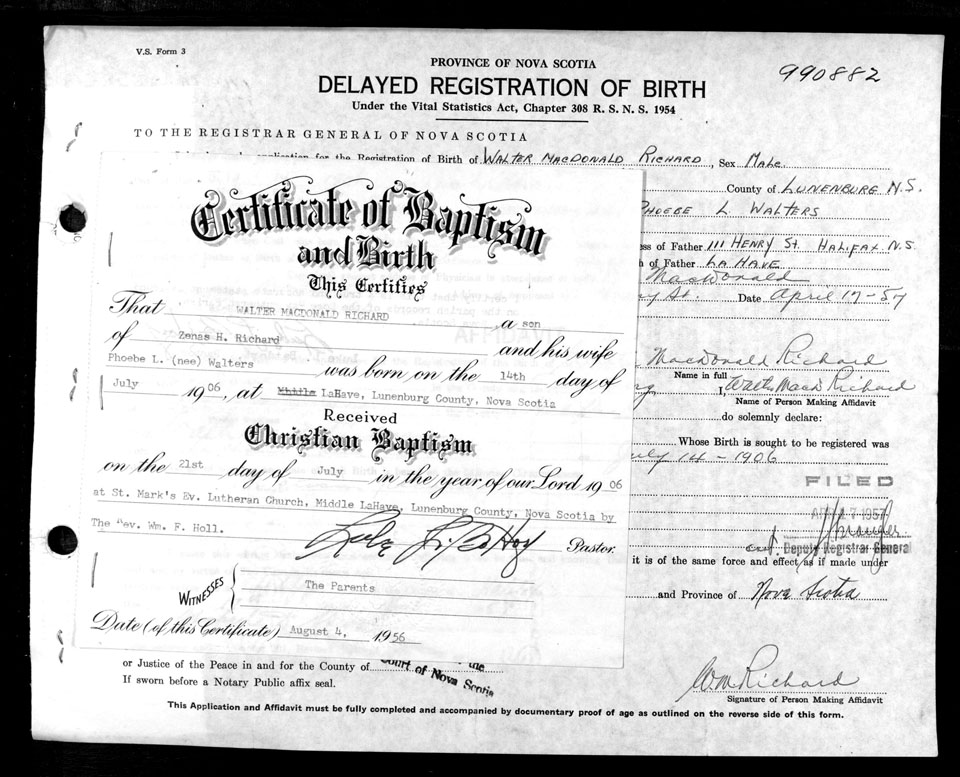 V.S. Form 3
PROVINCE OF NOVA SCOTIA
990882
DELAYED REGISTRATION OF BIRTH
Under the Vital Statistics Act, Chapter 308 R. S. N. S. 1954
TO THE REGISTRAR GENERAL OF NOVA SCOTIA
application for the Registration of Birth of WALTER MACDONALD RICHARD, Sex MALE
County of LUNENBURG N.S.
PHOEBE L WALTERS
ess of Father 111 HENRY ST. HALIFAX N.S
of Father LA HAVE
MacDonald
St. Date April 17-57
MacDonald Richard
Name in full
I, Walter MacD Richard
Name of Person Making Affidavit
do solemnly declare:
Whose Birth is sought to be registered was
July 14 - 1906
FILED
1957
Deputy Registrar General
it is of the same force and effect as if made under
and Province of Nova Scotia
Certificate of Baptism
and Birth
This Certifies
That WALTER MACDONALD RICHARD a son
of Zenas H. Richard and his wife
Phoebe L. (nee) Walters was born on the 14th day of
July 1906, at LaHave, Lunenburg County, Nova Scotia
Received
Christian Baptism
on the 21st day of July in the year of our Lord 1906
at St. Mark's Ev. Lutheran Church, Middle LaHave, Lunenburg County, Nova Scotia by
The Rev. Wm. F. Holl.
Pastor.
WITNESSES The Parents
Date (of this Certificate) August 4, 1956
or Justice of the Peace in and for the County of
Court of Nova Scotia
If sworn before a Notary Public affix seal.
Wm Richard
Signature of Person Making Affidavit
This Application and Affidavit must be fully completed and accompanied by documentary proof of age as outlined on the reverse side of this form.